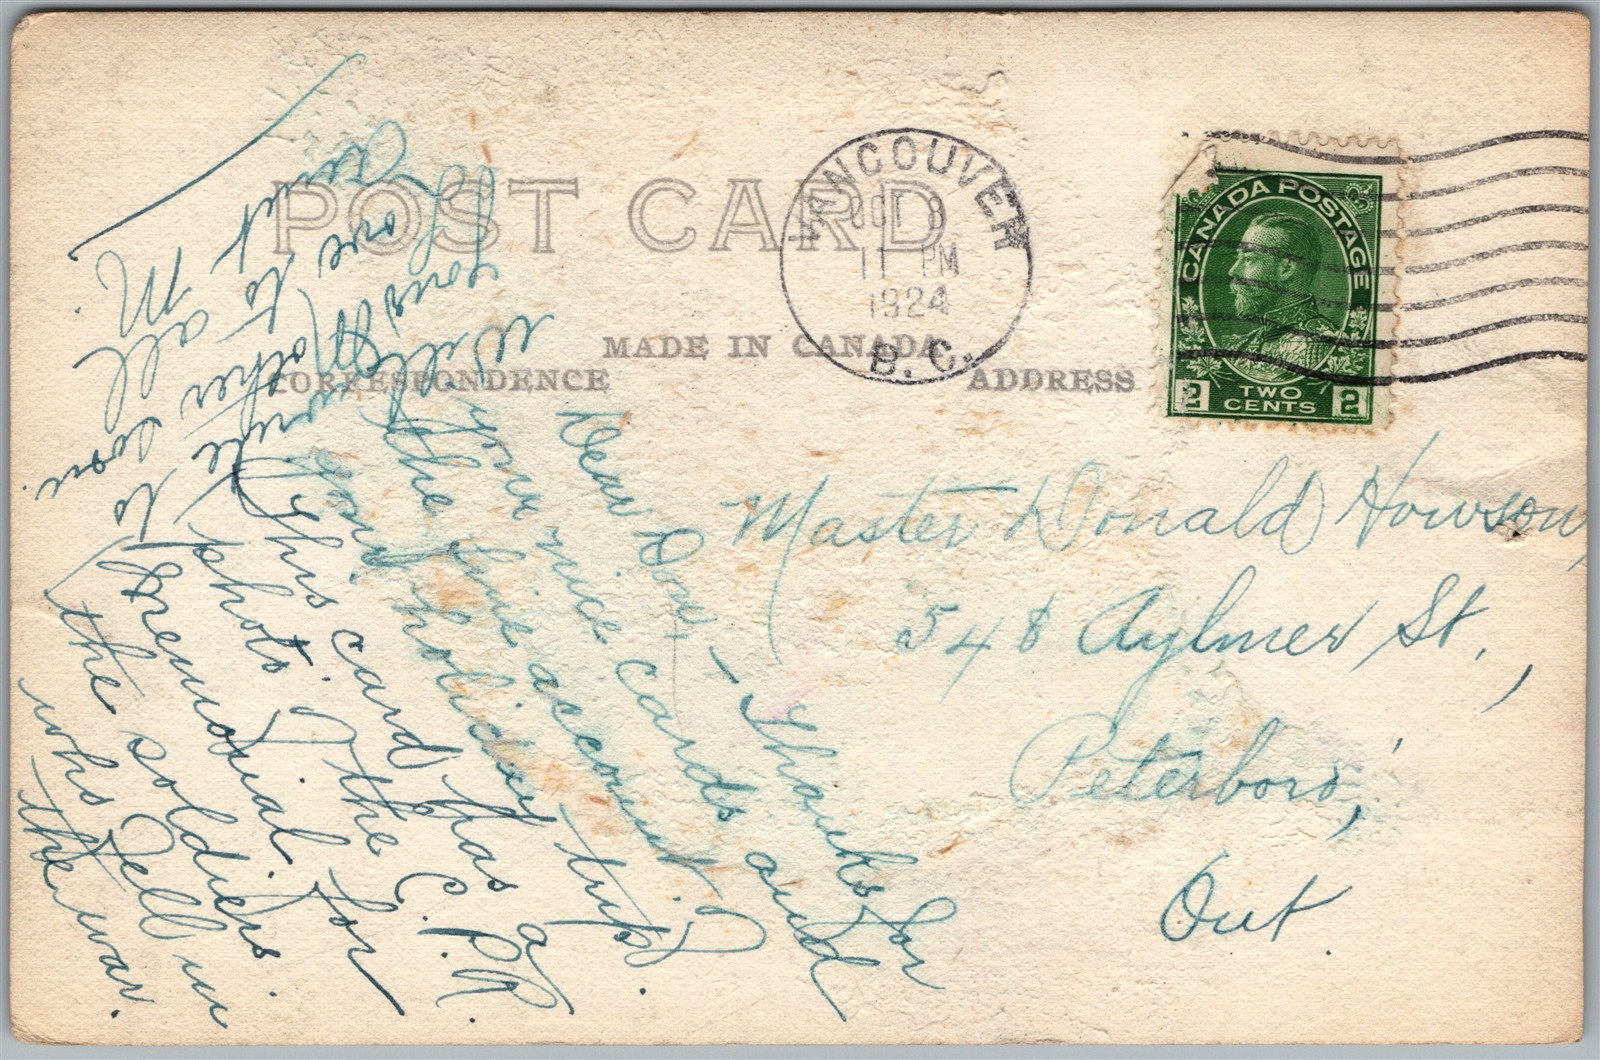 POST CARD
MADE IN CANADA
CORRESPONDENCE
ADDRESS
VANCOUVER
OCT 8
11 PM
1924
B. C.
CANADA POSTAGE
2 TWO CENTS 2
Master Donald Howson,
548 Aylmer St.,
Peterboro,
Ont.
Dear Don, - Thanks for
your nice cards and
the fine account of
your holiday trips.
This card has a
photo. of the C.P.R.
memorial for
the soldiers
who fell in
the war.
Will write to
Mother soon.
Love to all
Yours
Aunt M.